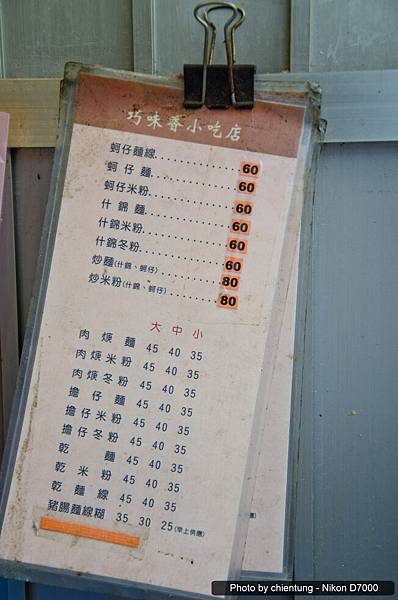 巧味香小吃店
蚵仔麵線 60
蚵仔麵 60
蚵仔米粉 60
什錦麵 60
什錦米粉 60
什錦冬粉 60
炒麵(什錦、蚵仔) 80
炒米粉(什錦、蚵仔) 80
大中小
肉焿麵 45 40 35
肉焿米粉 45 40 35
肉焿冬粉 45 40 35
擔仔麵 45 40 35
擔仔米粉 45 40 35
擔仔冬粉 45 40 35
乾麵 45 40 35
乾米粉 45 40 35
乾麵線 45 40 35
豬腸麵線糊 35 30 25(早上供應)
Photo by chientung - Nikon D7000